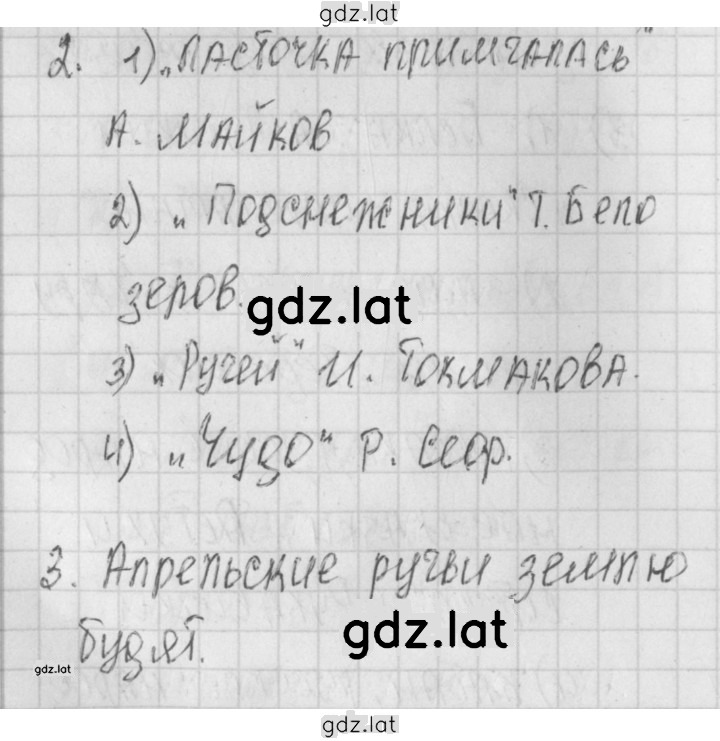 gdz.lat
2. 1) „Ласточка примчалась"
А. Майков
2) „Подснежники" Т. Бело
зеров.
gdz.lat
3) „Ручей" И. Токмакова.
4) „Чудо" Р. Сеф.
3. Апрельские ручьи землю
будят.
gdz.lat
gdz.lat
gdz.lat